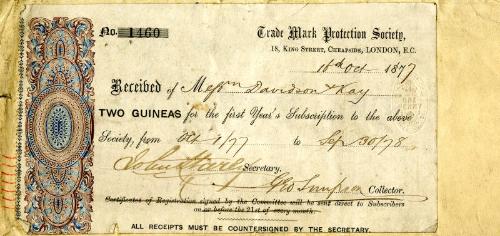 No. 1460
Trade Mark Protection Society,
18, KING STREET, CHEAPSIDE, LONDON, E.C.
18th Oct 1877
Received of Messrs Davidson & Kay
TWO GUINEAS for the first Year's Subscription to the above
Society, from Oct 1/77 to Sep 30/78
John Secretary.
Geo Simpson Collector.
Certificates of Registration signed by the Committee will be sent direct to Subscribers
on or before the 21st of every month.
ALL RECEIPTS MUST BE COUNTERSIGNED BY THE SECRETARY.